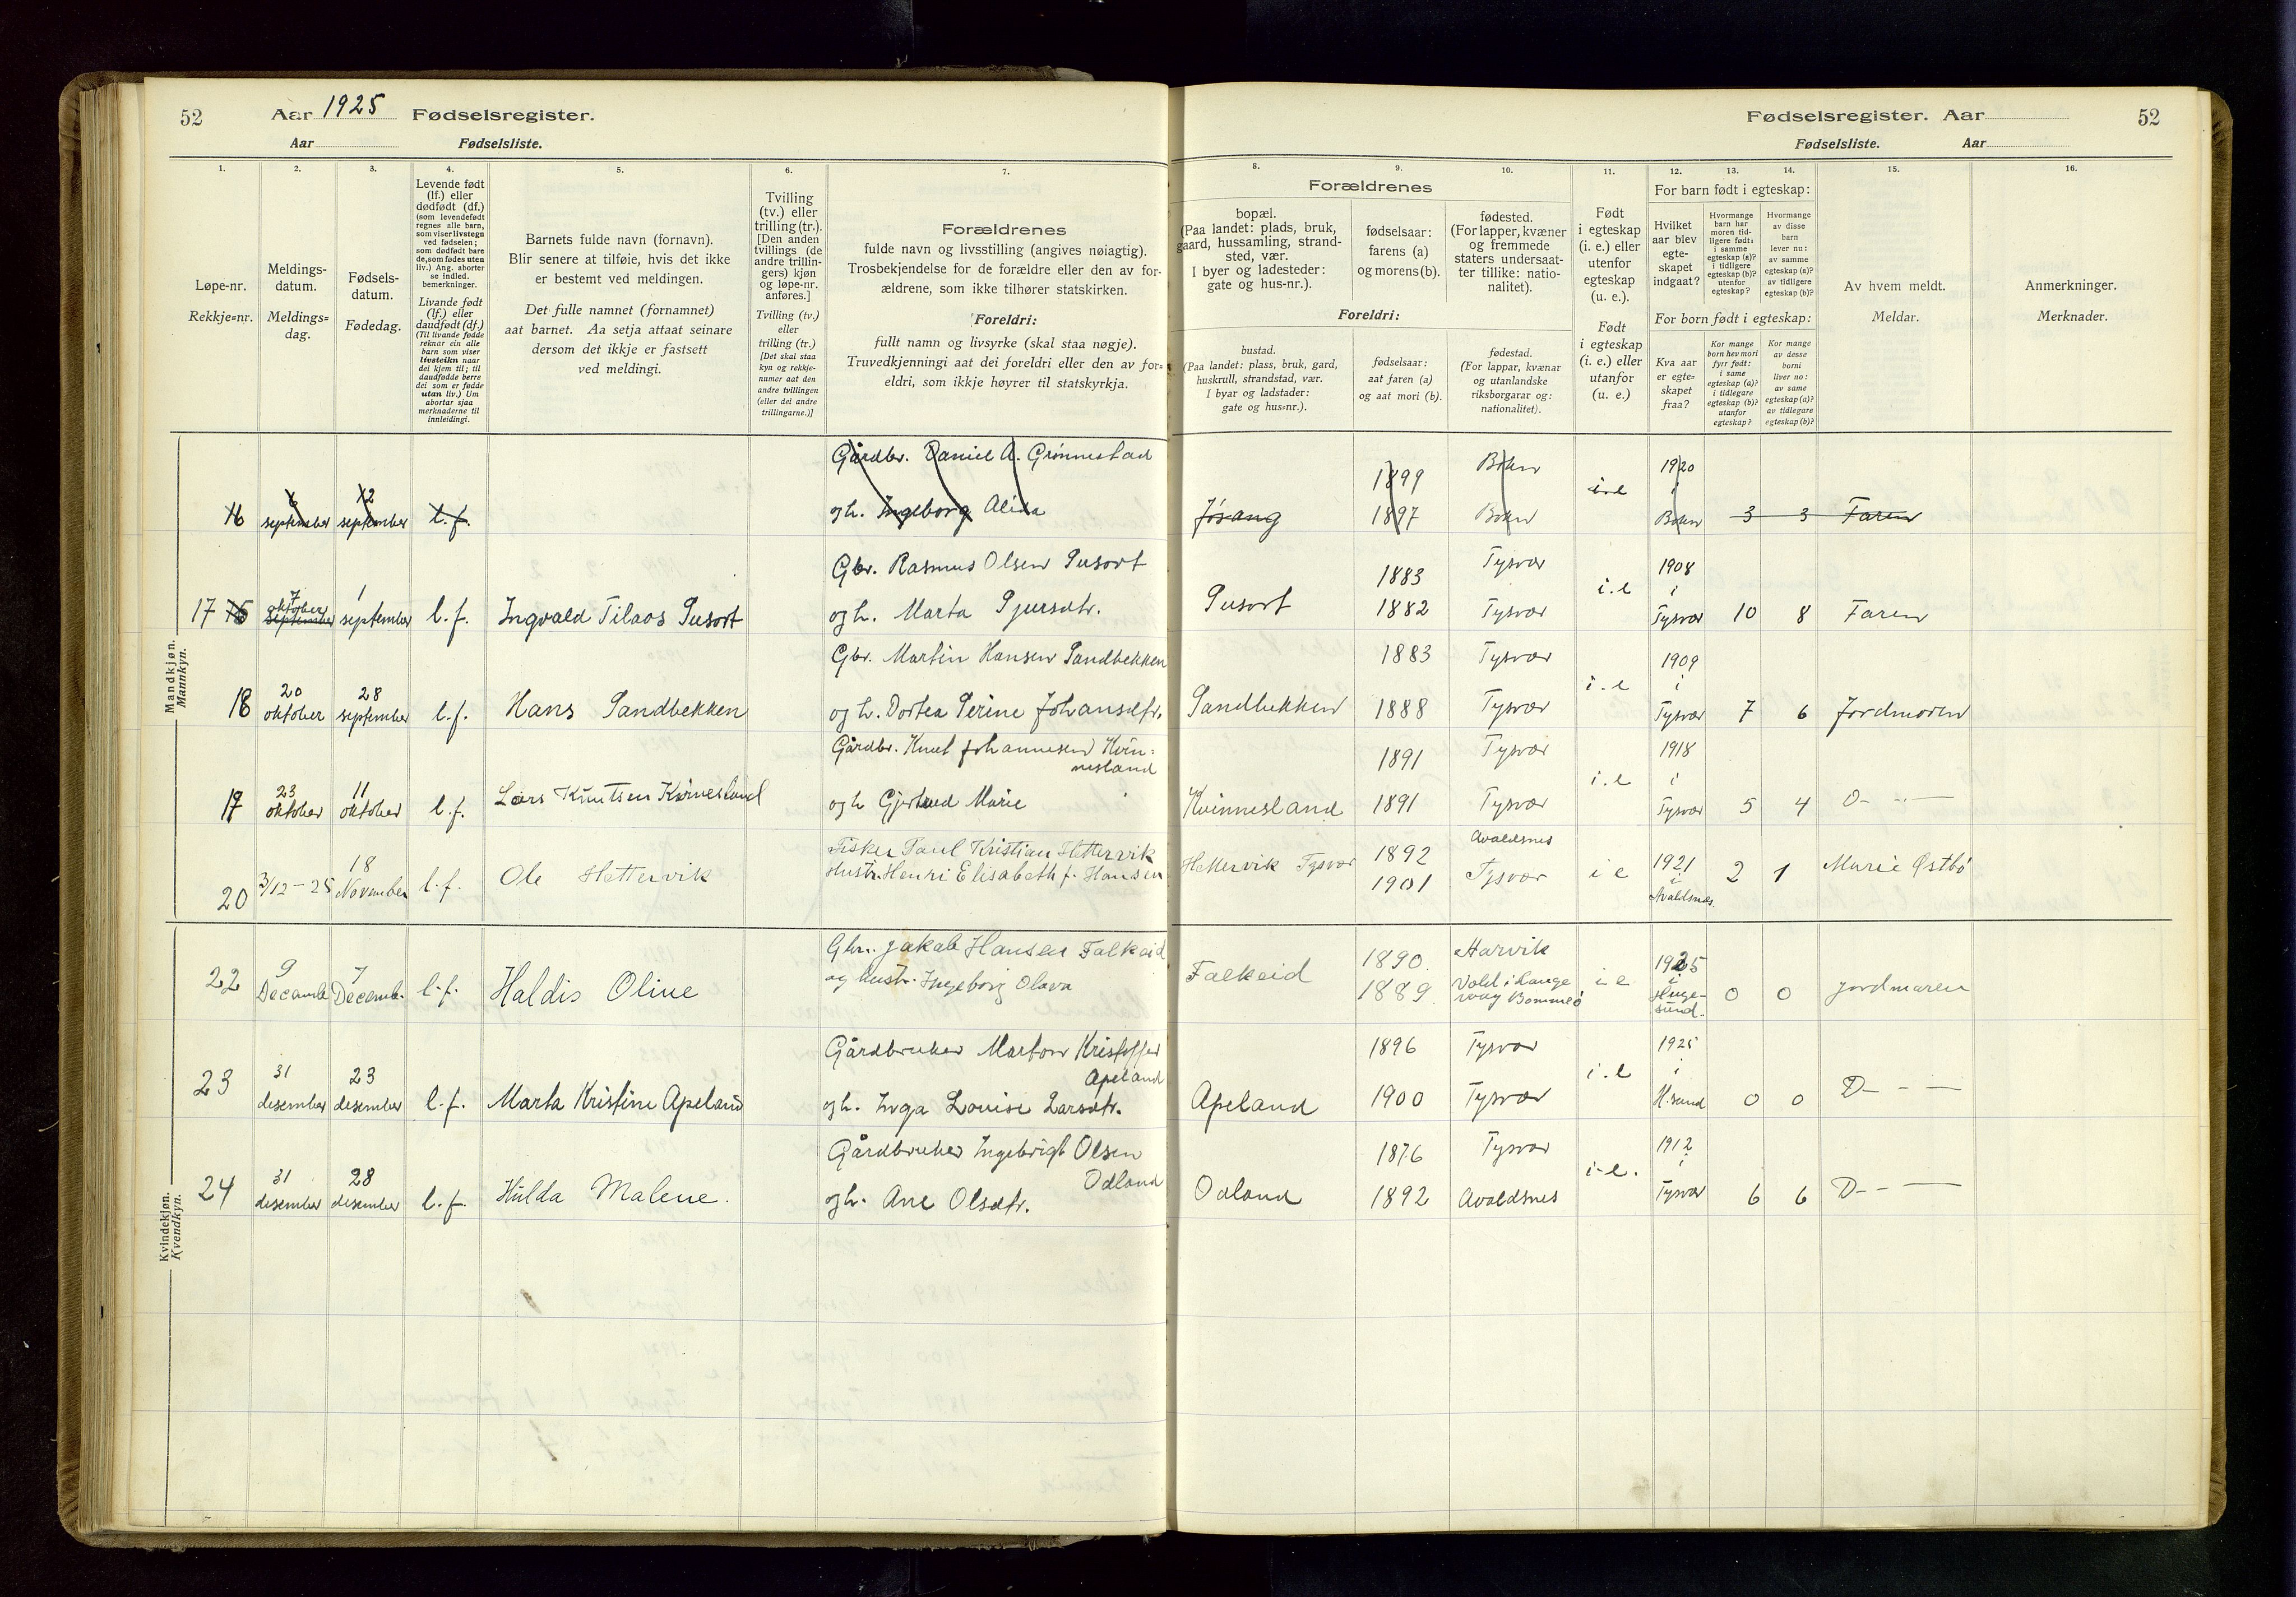 52 Aar 1925 Fødselsregister.
Aar Fødselsliste.
Fødselsregister. Aar 52
Fødselsliste. Aar
1. 2. 3. 4. 5. 6. 7. 8. 9. 10. 11. 12. 13. 14. 15. 16.
Løpe-nr.
Rekkje=nr.
Meldings-
datum.
Meldings=
dag.
Fødsels-
datum.
Fødedag.
Levende født
(lf.) eller
dødfødt (df.)
(som levendefødt
regnes alle barn,
som viser livstegn
ved fødselen;
som dødfødt bare
de, som fødes uten
liv.) Ang. aborter
se indled.
bemerkninger.
Livande født
(lf.) eller
daudfødt (df.)
(Til livande fødde
reknar ein alle
barn som viser
livsteikn naar
dei kjem til; til
daudfødde berre
dei som er fødde
utan liv.) Um
abortar sjaa
merknaderne til
innleidingi.
Barnets fulde navn (fornavn).
Blir senere at tilføie, hvis det ikke
er bestemt ved meldingen.
Det fulle namnet (fornamnet)
aat barnet. Aa setja attaat seinare
dersom det ikkje er fastsett
ved meldingi.
Tvilling
(tv.) eller
trilling (tr.).
[Den anden
tvillings (de
andre trillin-
gers) kjøn
og løpe-nr.
anføres.]
Tvilling (tv.)
eller
trilling (tr.)
[Det skal staa
kyn og rekkje-
numer aat den
andre tvillingen
(eller dei andre
trillingarne.)]
Forældrenes
fulde navn og livsstilling (angives nøiagtig).
Trosbekjendelse for de forældre eller den av for-
ældrene, som ikke tilhører statskirken.
Foreldri:
fullt namn og livsyrke (skal staa nøgje).
Truvedkjenningi aat dei foreldri eller den av for=
eldri, som ikkje høyrer til statskyrkja.
Forældrenes
bopæl.
(Paa landet: plads, bruk,
gaard, hussamling, strand-
sted, vær.
I byer og ladesteder:
gate og hus-nr.).
fødselsaar:
farens (a)
og morens (b).
fødested.
(For lapper, kvæner
og fremmede
staters undersaat-
ter tillike: natio-
nalitet).
Foreldri:
bustad.
(Paa landet: plass, bruk, gard,
huskrull, strandstad, vær.
I byar og ladstader:
gate og hus=nr.).
fødselsaar:
aat faren (a)
og aat mori (b).
fødestad.
(For lappar, kvænar
og utanlandske
riksborgarar og:
nationalitet).
Født
i egteskap
(i. e.) eller
utenfor
egteskap
(u. e.).
Født
i egteskap
(i. e.) eller
utanfor
(u. e.)
For barn født i egteskap:
Hvilket
aar blev
egte-
skapet
indgaat?
Hvormange
barn har
moren tid-
ligere født:
i samme
egteskap (a)?
i tidligere
egteskap (b)?
utenfor
egteskap?
Hvormange
av disse
barn
lever nu:
av samme
egteskap (a)?
av tidligere
egteskap (b)?
For born født i egteskap:
Kva aar
er egte-
skapet
fraa?
Kor mange
born hev mori
fyrr født:
i same
egteskap (a)?
i tidlegare
egteskap (b)?
utanfor
egteskap?
Kor mange
av desse
borni
liver no:
av same
egteskap (a)?
av tidlegare
egteskap (b)?
Av hvem meldt.
Meldar.
Anmerkninger.
Merknader.
Mandkjøn.
Mannkyn.
Gårdbr. Daniel A. Grønnestad 1899 Bokn 1920
16 september 12 september l.f. og h. Ingeborg Alida Jøsang 1897 Bokn i.e i Bokn 3 3 Faren
Gbr. Rasmus Olsen Susort 1883 Tysvær 1908
17 7 oktober september 1 september l.f. Ingvald Tilaos Susort og h. Marta Sjursdtr. Susort 1882 Tysvær i.e i Tysvær 10 8 Faren
Gbr. Martin Hansen Sandbekken 1883 Tysvær 1909
18 20 oktober 28 september l.f. Hans Sandbekken og h. Dortea Serine Johansdtr. Sandbekken 1888 Tysvær i.e i Tysvær 7 6 Jordmoren
Gårdbr. Knut Johannesen Kvin=
nesland 1891 Tysvær 1918
19 23 oktober 11 oktober l.f. Lars Knutsen Kvinnesland og h Gjertrud Marie Kvinnesland 1891 Tysvær i.e i Tysvær 5 4 D- -"-
Fisker Paul Kristian Hettervik 1892 Avaldsnes 1921
20 3/12-25 18 November l.f. Ole Hettervik Hustr. Henri Elisabeth f. Hansen Hettervik Tysvær 1901 Tysvær i e i Avaldsnes. 2 1 Marie Østbø
Kvindekjøn.
Kvendkyn.
Gbr. Jakob Hansen Falkeid 1890. Harvik 1925
22 9 Decembe 7 Decembe. l.f. Haldis Oline og hustr. Ingeborg Olava Falkeid 1889. Vold i Lange
vaag Bømmelø i e i Huge-
sund. 0 0 Jordmoren
Gårdbruker Morton Kristoffer
Apeland 1896 Tysvær 1925
23 31 desember 23 desember l.f. Marta Kristine Apeland og h. Inga Louise Larsdtr. Apeland 1900 Tysvær i.e i H.sund 0 0 D- - -
Gårdbruker Ingebrigt Olsen
Odland 1876 Tysvær 1912
24 31 desember 28 desember l.f. Hulda Malene. og h. Ane Olsdtr. Odland 1892 Avaldsnes i-e. i Tysvær 6 6 D- - -